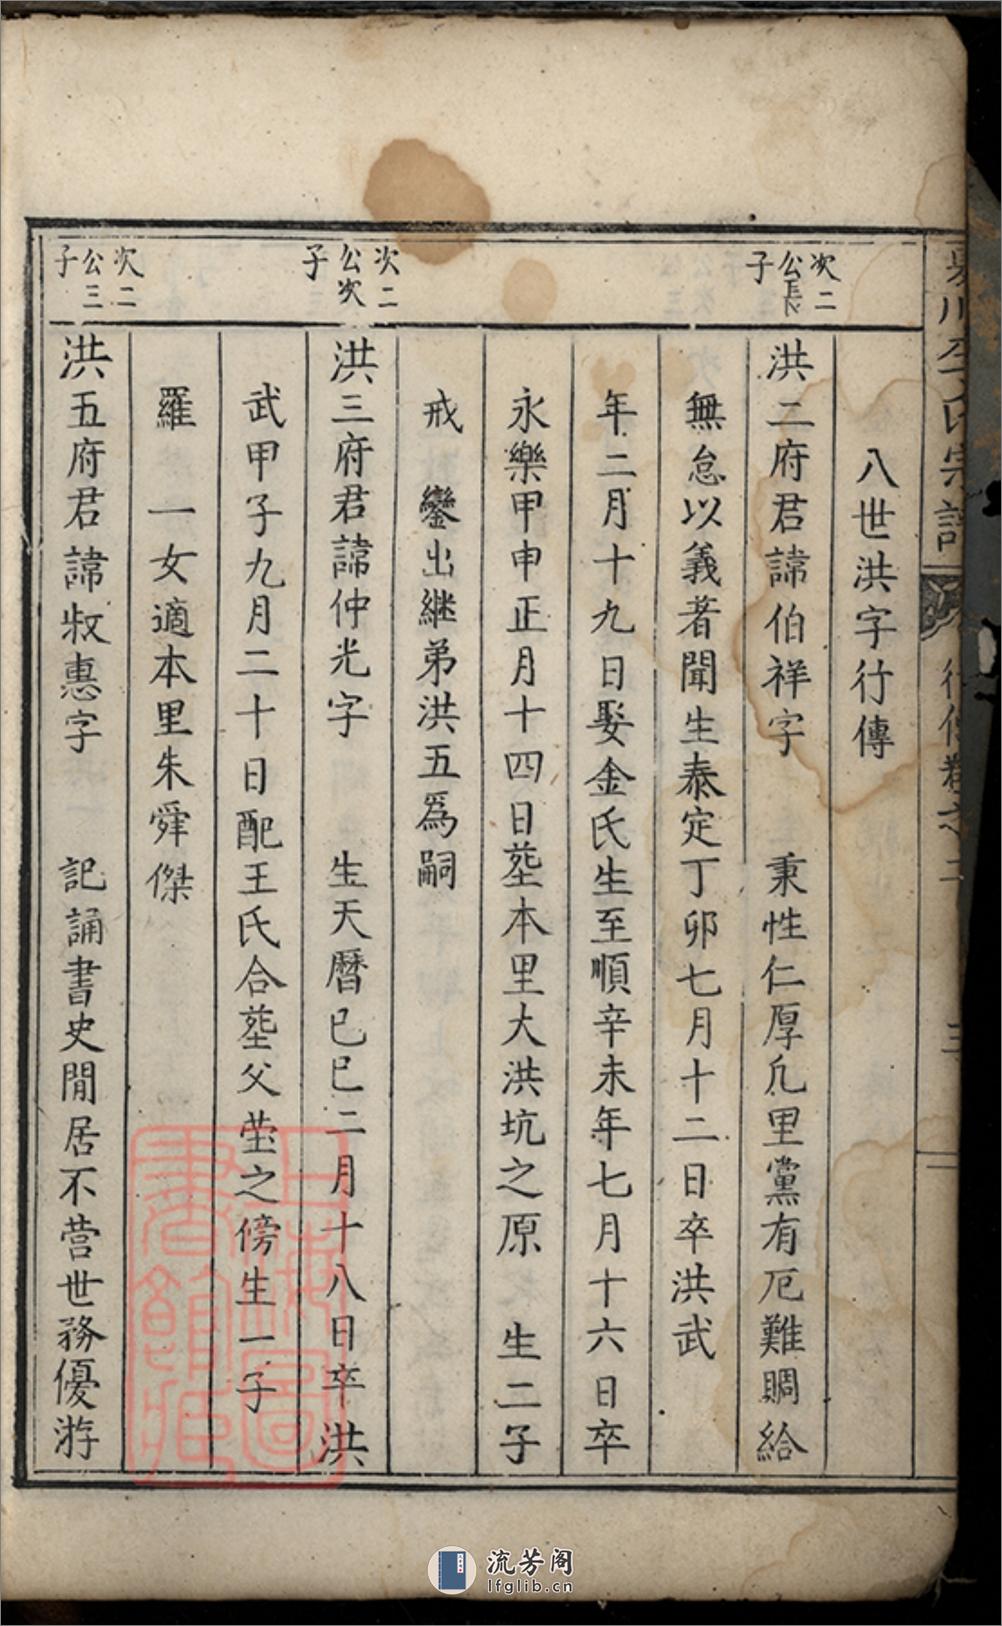 川李氏宗譜 行傳卷之二 三
八世洪字行傳
次二公長子
洪二府君諱伯祥字 秉性仁厚凡里黨有厄難賙給
無怠以義著聞生泰定丁卯七月十二日卒洪武
年二月十九日娶金氏生至順辛未年七月十六日卒
永樂甲申正月十四日塟本里大洪坑之原 生二子
戒 鑾出継弟洪五為嗣
次二公次子
洪三府君諱仲光字 生天曆己巳二月十八日卒洪
武甲子九月二十日配王氏合塟父塋之傍生一子
羅 一女適本里朱舜傑
次二公三子
洪五府君諱叔惠字 記誦書史閒居不营世務優游
上海圖書館藏
流芳阁
lfglib.cn